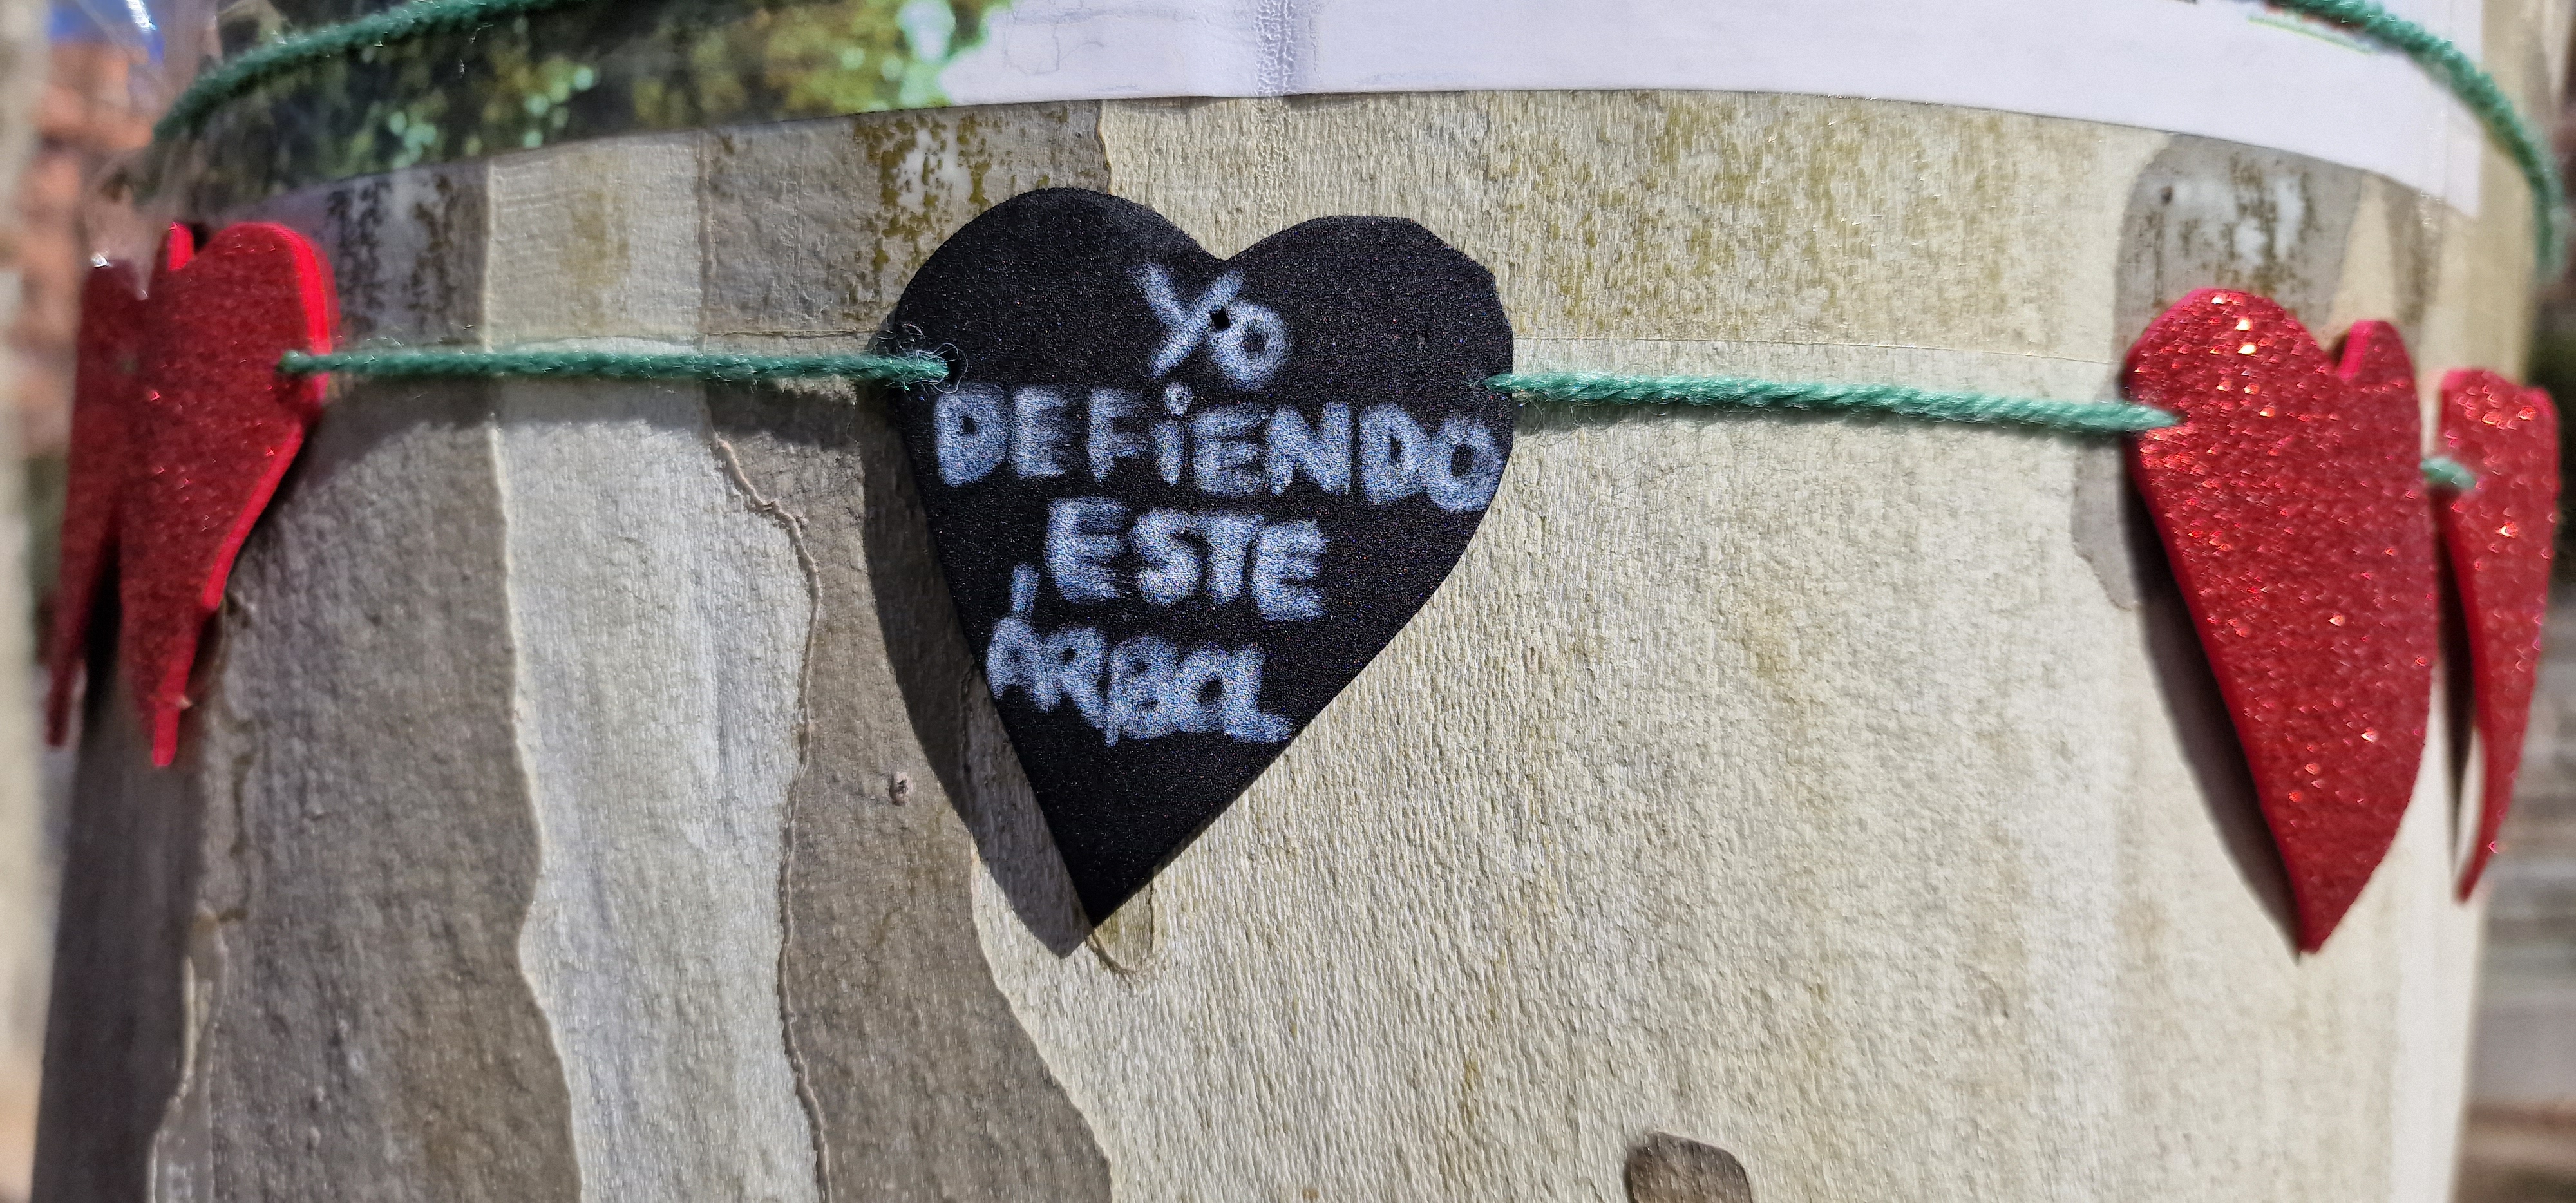 YO
DEFiENDO
ESTE
ÁRBOL